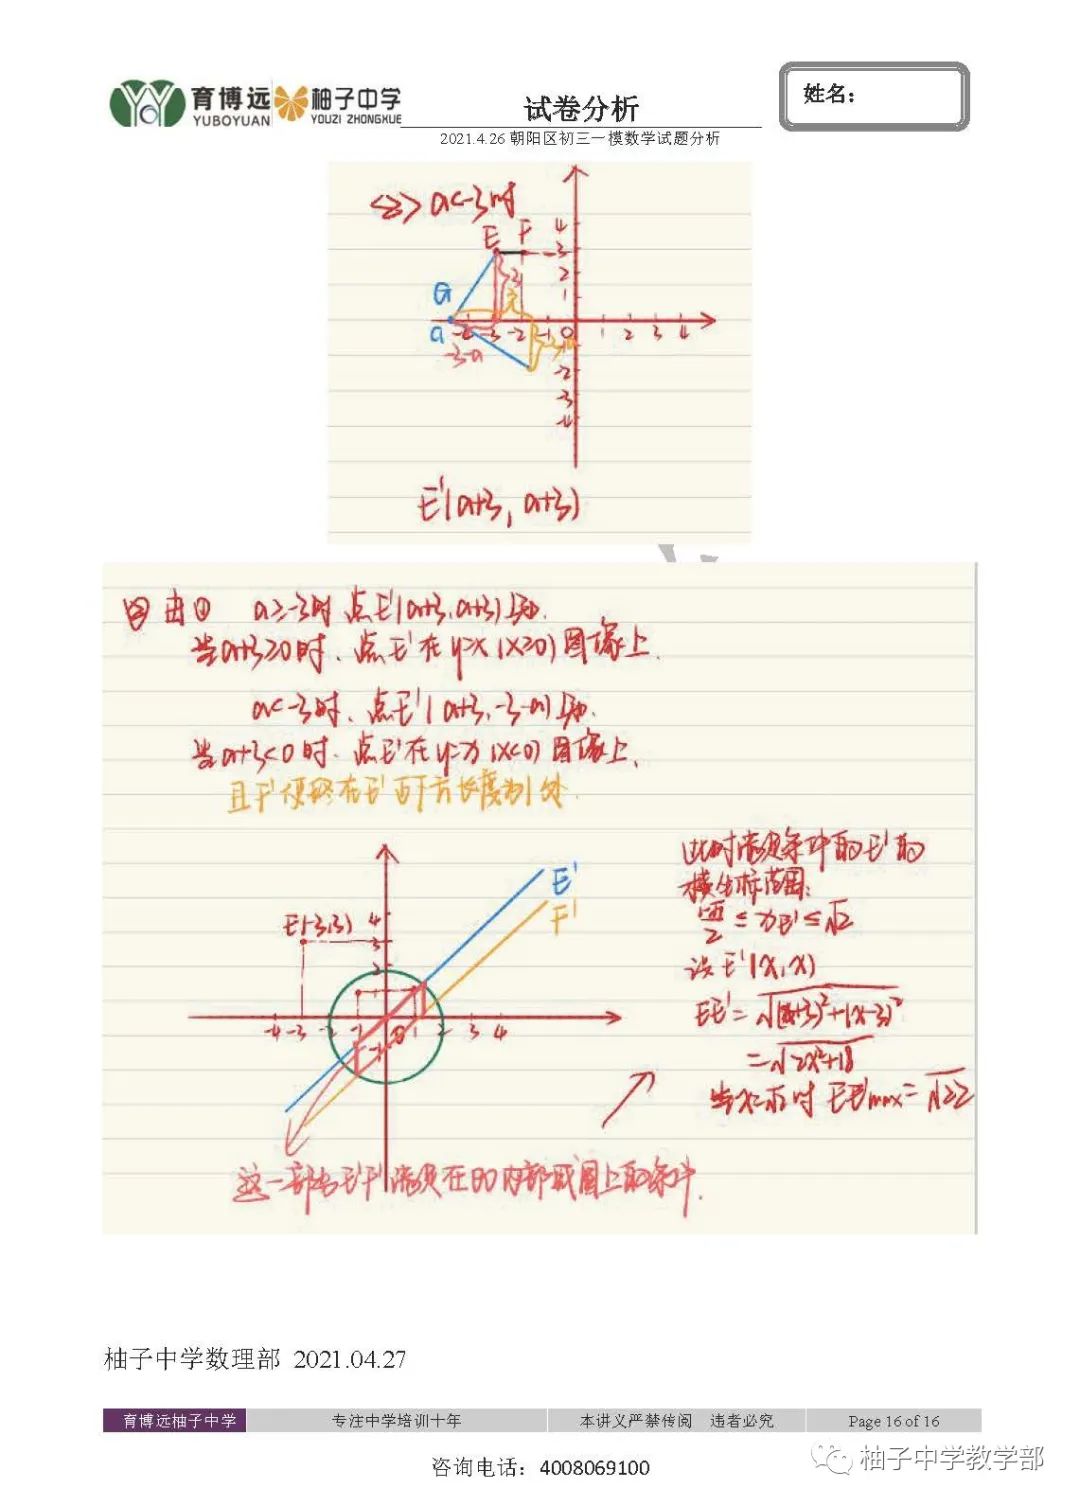 育博远 柚子中学
YUBOYUAN YOUZI ZHONGXUE
试卷分析
姓名：
2021.4.26 朝阳区初三一模数学试题分析
<2> a<-3时
E F
4
3
2
1
G
a
-4 -3 -2 -1 0 1 2 3 4
-3-a
-2
-3
-4
E'(a+3, a+3)
② 由① a≥-3时 点E'(a+3,a+3)可知.
当a+3≥0时、点E'在y=x(x≥0)图像上.
a<-3时、点E'(a+3,-3-a)可知.
当a+3<0时、点E'在y=x(x<0)图像上,
且F'便终在E'正下方长度为1处.
E'
F'
E(-3,3)
4
3
2
-4 -3 -2 -1 0 1 2 3 4
-1
此时满足条件的E'的
横坐标范围:
≤xE'≤√2
设E'(x,x)
EE'=√(x+3)²+(x-3)²
=√2x²+18
当x=√2时 EE'max=√22
这一部分E'F'满足在⊙O内部或圆上的条件.
柚子中学数理部 2021.04.27
育博远柚子中学 专注中学培训十年 本讲义严禁传阅 违者必究 Page 16 of 16
咨询电话：4008069100
柚子中学教学部